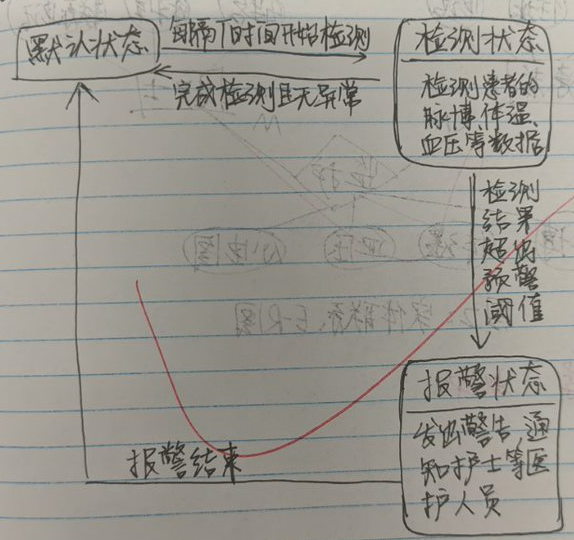 默认状态
每隔T时间开始检测
完成检测且无异常
检测状态
检测患者的
脉博、体温、
血压等数据
检测
结果
超出
预警
阈值
报警状态
发出警告,通
知护士等医
护人员
报警结束